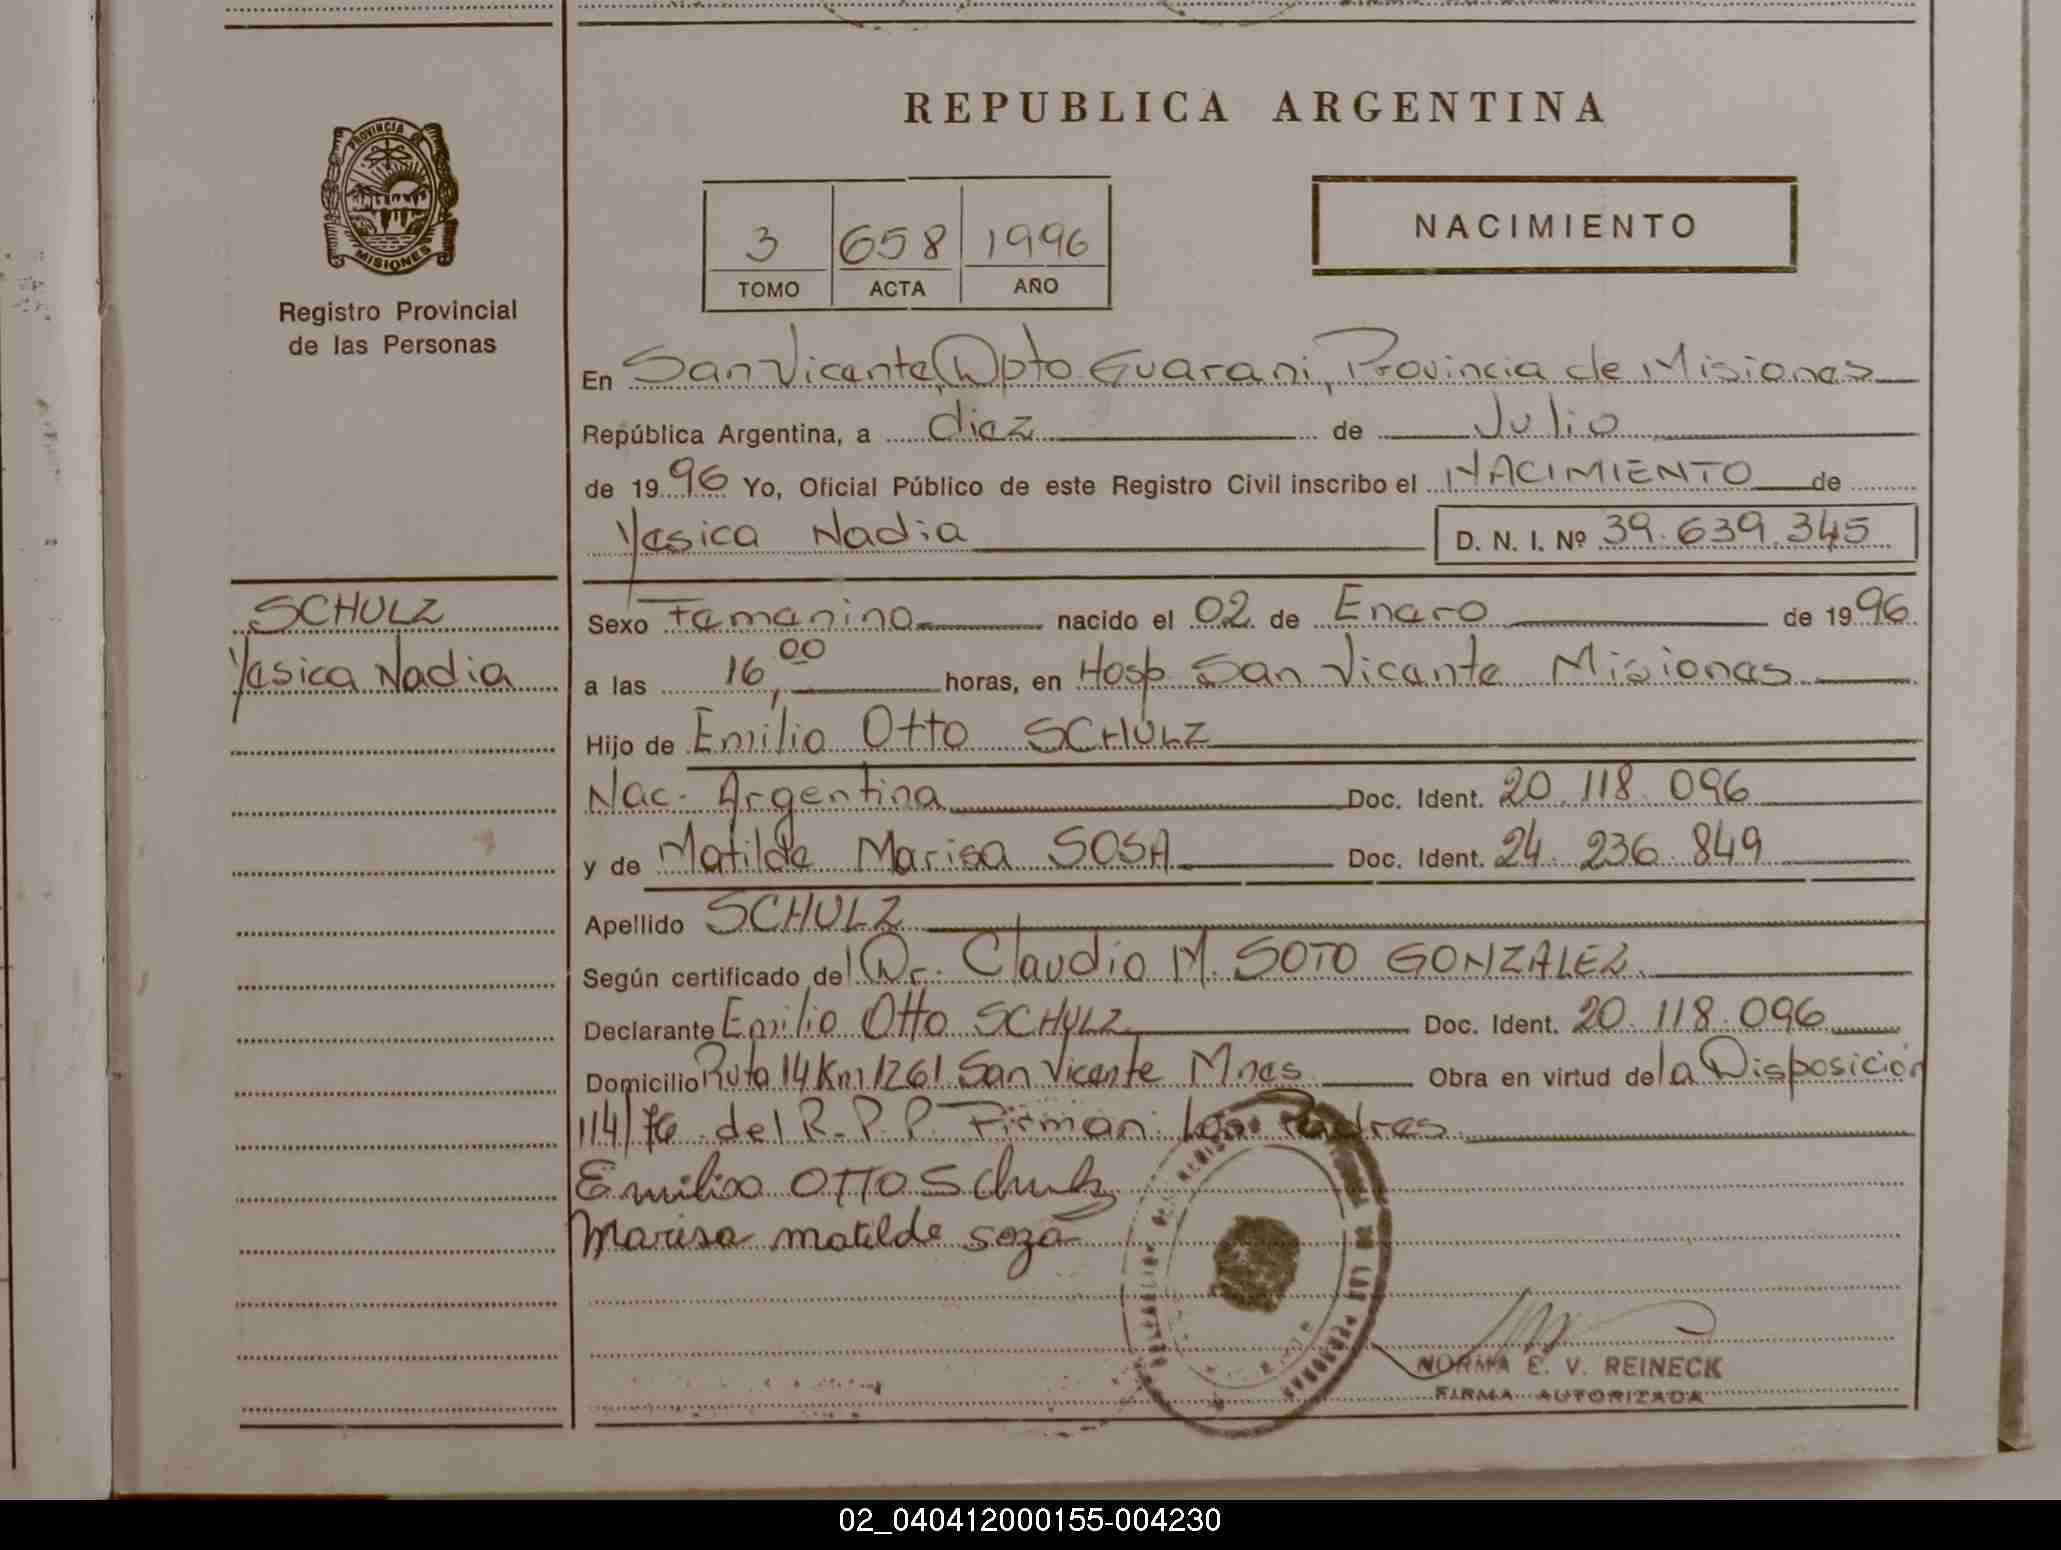 REPUBLICA ARGENTINA
PROVINCIA
MISIONES
Registro Provincial
de las Personas
3 658 1996
TOMO ACTA AÑO
NACIMIENTO
En San Vicente, Dpto Guarani, Provincia de Misiones
República Argentina, a diez de Julio
de 1996 Yo, Oficial Público de este Registro Civil inscribo el NACIMIENTO de
Yesica Nadia D. N. I. Nº 39.639.345
SCHULZ
Yesica Nadia
Sexo Femenino nacido el 02 de Enero de 1996
a las 16,00 horas, en Hosp San Vicente Misiones
Hijo de Emilio Otto SCHULZ
Nac. Argentina Doc. Ident. 20.118.096
y de Matilde Marisa SOSA Doc. Ident. 24.236.849
Apellido SCHULZ
Según certificado del Dr. Claudio M. SOTO GONZALEZ
Declarante Emilio Otto SCHULZ Doc. Ident. 20.118.096
Domicilio Ruta 14 Km 1261 San Vicente Mnes Obra en virtud de la Disposición
114/76 del R.P.P. Firman: Los Padres
Emilio OTTO Schulz
Marisa matilde soza
DE LAS PERSONAS
NORMA E. V. REINECK
FIRMA AUTORIZADA
02_040412000155-004230